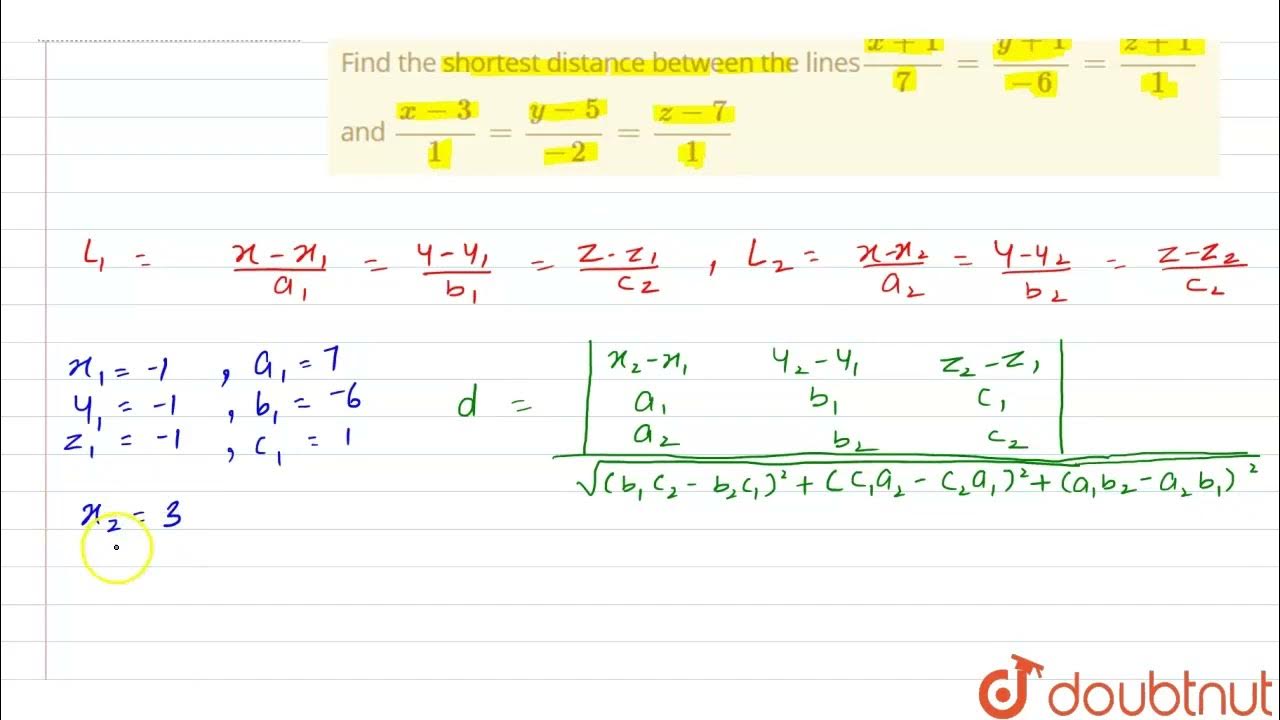 Find the shortest distance between the lines x+1/7 = y+1/-6 = z+1/1
and x-3/1 = y-5/-2 = z-7/1
L₁ = x-x₁/a₁ = y-y₁/b₁ = z-z₁/c₂ , L₂ = x-x₂/a₂ = y-y₂/b₂ = z-z₂/c₂
x₁ = -1 , a₁ = 7
y₁ = -1 , b₁ = -6
z₁ = -1 , c₁ = 1
d = | x₂-x₁ y₂-y₁ z₂-z₁ |
| a₁ b₁ c₁ |
| a₂ b₂ c₂ |
√(b₁c₂ - b₂c₁)² + (c₁a₂ - c₂a₁)² + (a₁b₂ - a₂b₁)²
x₂ = 3
doubtnut